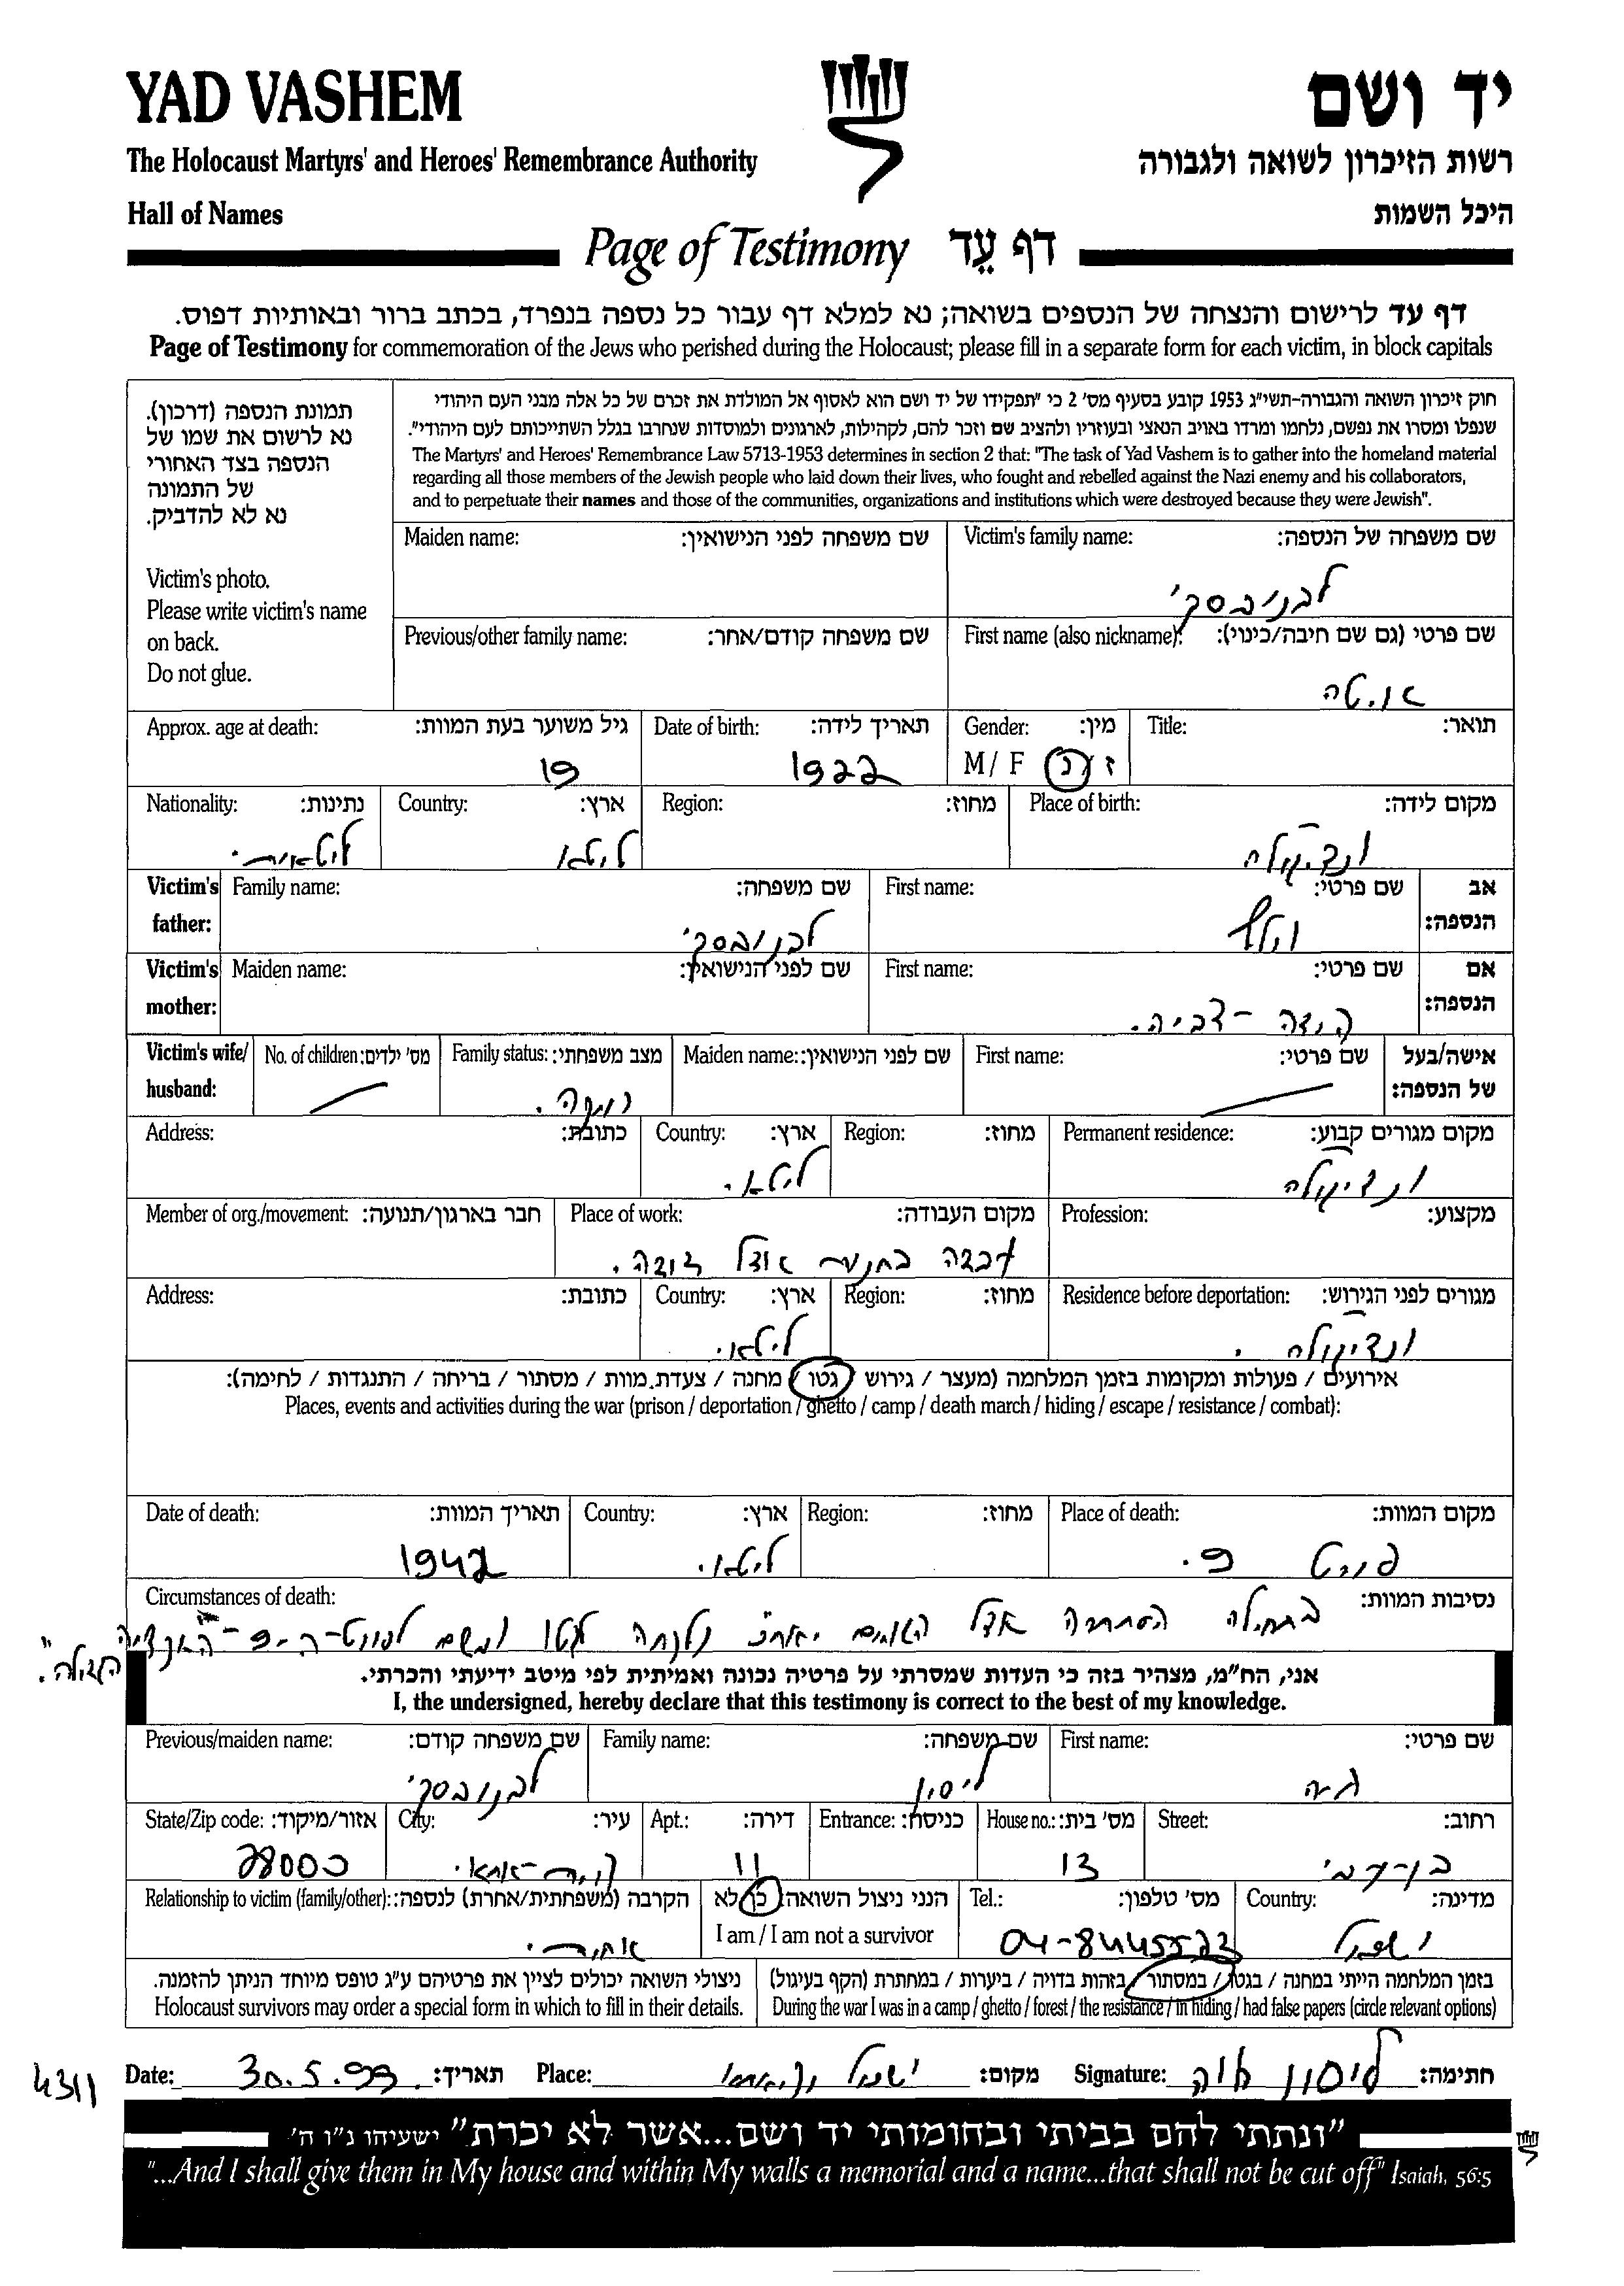 YAD VASHEM
יד ושם
The Holocaust Martyrs' and Heroes' Remembrance Authority
רשות הזיכרון לשואה ולגבורה
Hall of Names
היכל השמות
Page of Testimony דף עֵד
דף עד לרישום והנצחה של הנספים בשואה; נא למלא דף עבור כל נספה בנפרד, בכתב ברור ובאותיות דפוס.
Page of Testimony for commemoration of the Jews who perished during the Holocaust; please fill in a separate form for each victim, in block capitals
חוק זיכרון השואה והגבורה-תשי"ג 1953 קובע בסעיף מס' 2 כי "תפקידו של יד ושם הוא לאסוף אל המולדת את זכרם של כל אלה מבני העם היהודי
שנפלו ומסרו את נפשם, נלחמו ומרדו באויב הנאצי ובעוזריו ולהציב שם וזכר להם, לקהילות, לארגונים ולמוסדות שנחרבו בגלל השתייכותם לעם היהודי".
The Martyrs' and Heroes' Remembrance Law 5713-1953 determines in section 2 that: "The task of Yad Vashem is to gather into the homeland material
regarding all those members of the Jewish people who laid down their lives, who fought and rebelled against the Nazi enemy and his collaborators,
and to perpetuate their names and those of the communities, organizations and institutions which were destroyed because they were Jewish".
תמונת הנספה (דרכון).
נא לרשום את שמו של
הנספה בצד האחורי
של התמונה
נא לא להדביק.
Victim's photo.
Please write victim's name
on back.
Do not glue.
Victim's family name: שם משפחה של הנספה:
לבנובסקי
Maiden name: שם משפחה לפני הנישואין:
First name (also nickname): שם פרטי (גם שם חיבה/כינוי):
Previous/other family name: שם משפחה קודם/אחר:
Title: תואר:
Gender: מין:
M / F ז / נ
Date of birth: תאריך לידה:
1922
Approx. age at death: גיל משוער בעת המוות:
19
Place of birth: מקום לידה:
Region: מחוז:
Country: ארץ:
ליטא
Nationality: נתינות:
ליטאית
Victim's father: אב הנספה:
First name: שם פרטי:
וולף
Family name: שם משפחה:
לבנובסקי
Victim's mother: אם הנספה:
First name: שם פרטי:
Maiden name: שם לפני הנישואין:
Victim's wife/ husband: אישה/בעל של הנספה:
First name: שם פרטי:
Maiden name: שם לפני הנישואין:
Family status: מצב משפחתי:
רווקה.
No. of children: מס' ילדים:
Permanent residence: מקום מגורים קבוע:
Region: מחוז:
Country: ארץ:
ליטא.
Address: כתובת:
Profession: מקצוע:
Place of work: מקום העבודה:
עבדה בחנות אצל דודה.
Member of org./movement: חבר בארגון/תנועה:
Residence before deportation: מגורים לפני הגירוש:
Region: מחוז:
Country: ארץ:
ליטא.
Address: כתובת:
אירועים / פעולות ומקומות בזמן המלחמה (מעצר / גירוש / גטו / מחנה / צעדת מוות / מסתור / בריחה / התנגדות / לחימה):
Places, events and activities during the war (prison / deportation / ghetto / camp / death march / hiding / escape / resistance / combat):
Place of death: מקום המוות:
פורט 9.
Region: מחוז:
Country: ארץ:
ליטא.
Date of death: תאריך המוות:
1942
Circumstances of death: נסיבות המוות:
בתחילה הסתתרה אצל האומים ואח"כ נלקחה לגטו ומשם לפורט-ה-9-"האקציה
הגדולה".
אני, הח"מ, מצהיר בזה כי העדות שמסרתי על פרטיה נכונה ואמיתית לפי מיטב ידיעתי והכרתי.
I, the undersigned, hereby declare that this testimony is correct to the best of my knowledge.
First name: שם פרטי:
Family name: שם משפחה:
ליסון
Previous/maiden name: שם משפחה קודם:
לבנובסקי
Street: רחוב:
House no.: מס' בית:
13
Entrance: כניסה:
Apt.: דירה:
11
City: עיר:
קרית-אתא.
State/Zip code: אזור/מיקוד:
28000
Country: מדינה:
ישראל
Tel.: מס' טלפון:
04-8445523
הנני ניצול השואה: כן לא
I am / I am not a survivor
Relationship to victim (family/other): הקרבה (משפחתית/אחרת) לנספה:
אחות.
בזמן המלחמה הייתי במחנה / בגטו / במסתור / בזהות בדויה / ביערות / במחתרת (הקף בעיגול)
During the war I was in a camp / ghetto / forest / the resistance / in hiding / had false papers (circle relevant options)
ניצולי השואה יכולים לציין את פרטיהם ע"ג טופס מיוחד הניתן להזמנה.
Holocaust survivors may order a special form in which to fill in their details.
Signature: ליסון חתימה:
Place: ישראל ק.אתא מקום:
Date: 30.5.99. תאריך:
4311
"ונתתי להם בביתי ובחומותי יד ושם...אשר לא יכרת" ישעיהו נ"ו ה'
"...And I shall give them in My house and within My walls a memorial and a name...that shall not be cut off" Isaiah, 56:5